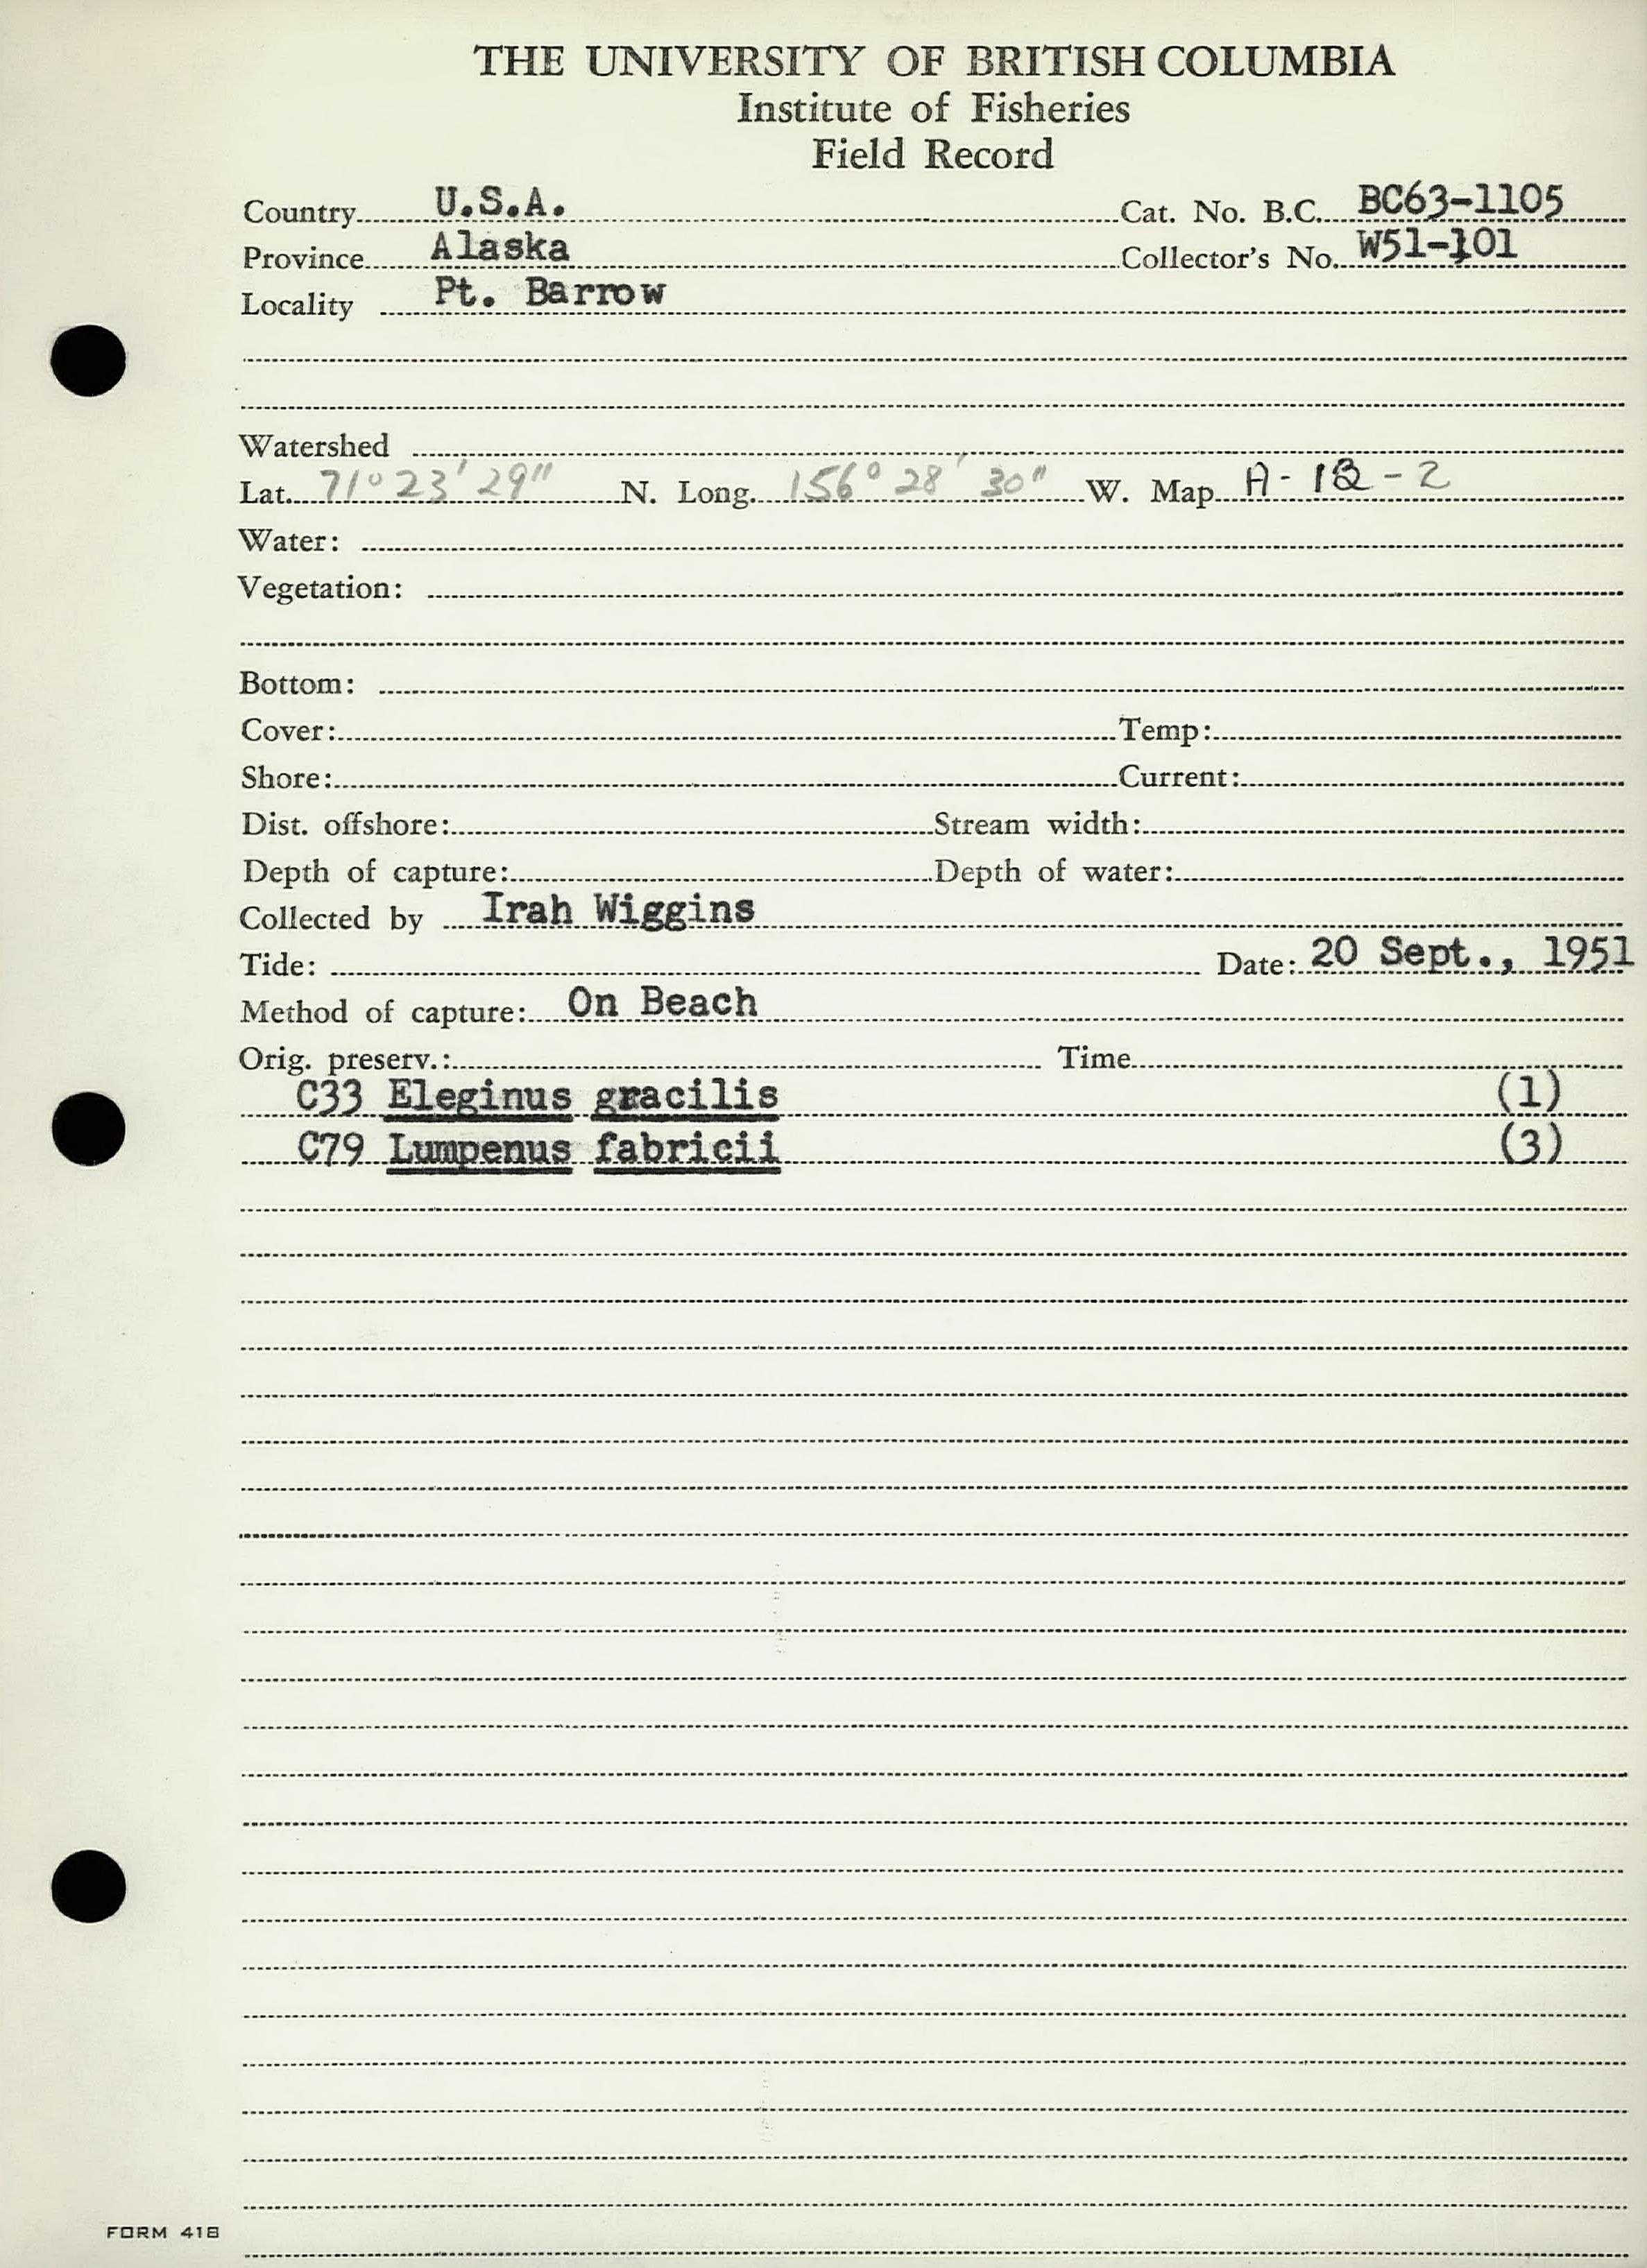 THE UNIVERSITY OF BRITISH COLUMBIA
Institute of Fisheries
Field Record
Country U.S.A. Cat. No. B.C. BC63-1105
Province Alaska Collector's No. W51-101
Locality Pt. Barrow
Watershed
Lat. 71° 23' 29" N. Long. 156° 28' 30" W. Map A-12-2
Water:
Vegetation:
Bottom:
Cover: Temp:
Shore: Current:
Dist. offshore: Stream width:
Depth of capture: Depth of water:
Collected by Irah Wiggins
Tide: Date: 20 Sept., 1951
Method of capture: On Beach
Orig. preserv.: Time
C33 Eleginus gracilis (1)
C79 Lumpenus fabricii (3)
FORM 418